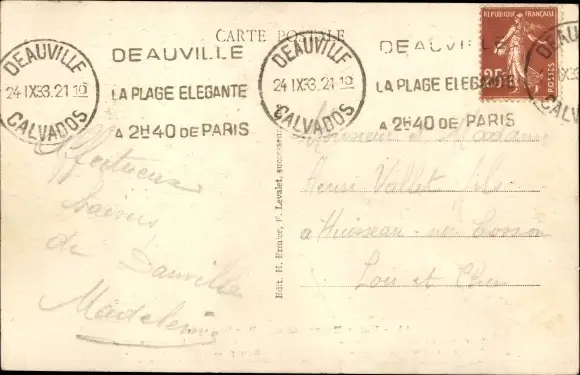 CARTE POSTALE
DEAUVILLE
24 IX33.21 10
CALVADOS
DEAUVILLE
LA PLAGE ELEGANTE
A 2H40 DE PARIS
DEAUVILLE
24 IX33.21 10
CALVADOS
DEAUVILLE
LA PLAGE ELEGANTE
A 2H40 DE PARIS
REPUBLIQUE FRANÇAISE
POSTES
Affectueux
baisers
de Deauville
Madeleine
Edit. H. Ermice, F. Levalet, successeur
Monsieur & Madame
Henri Vallet fils
a Huisseau-sur-Cosson
Loir et Cher